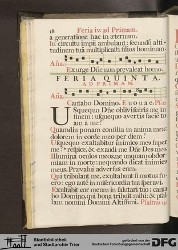 58 Feria iv. ad Primam.
a generatione hac in æternum.
In circuitu impii ambulant: secundum alti-
tudinem tuã multiplicasti filios hominum.
Aña.
Exurge Dñe non prævaleat homo.
FERIA QUINTA.
AD PRIMAM.
Aña.
Cantabo Domino. E u o u a e. Ps.
Usquequo Dñe oblivisceris me in
finem: usquequo avertis faciẽ
tuam a me?
Quamdiu ponam consilia in anima mea:
dolorem in corde meo per diem?
Usquequo exaltabitur inimicus meus super
me: respice, & exaudi me Dñe Deus meus.
Illumina oculos meos ne umquam obdor-
miam in morte: nequando dicat inimicus
meus. Prævalui adversus eum.
Qui tribulant me, exultabunt si motus
fuero: ego autẽ in misericordia tua speravi.
Exultabit cor meum in salutari tuo: canta-
bo Domino, qui bona tribuit mihi: & psal-
lam nomini Domini Altissimi. Psalmus
Stadtbibliothek
und Stadtarchiv Trier
gefördert von der
Deutschen Forschungsgemeinschaft
DFG